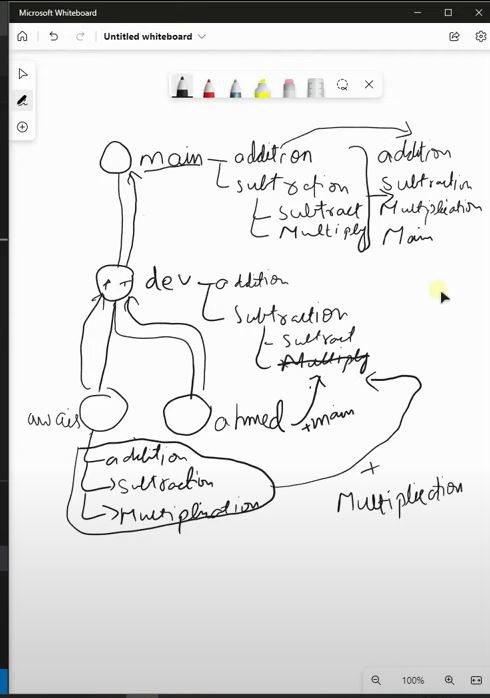 Microsoft Whiteboard
Untitled whiteboard
main addition addition
subtraction Subtraction
Subtract Multiplication
Multiply Main
dev addition
Subtraction
Subtract
Multiply
awais ahmed +main
addition
Subtraction
Multiplication
+
Multiplication
100%